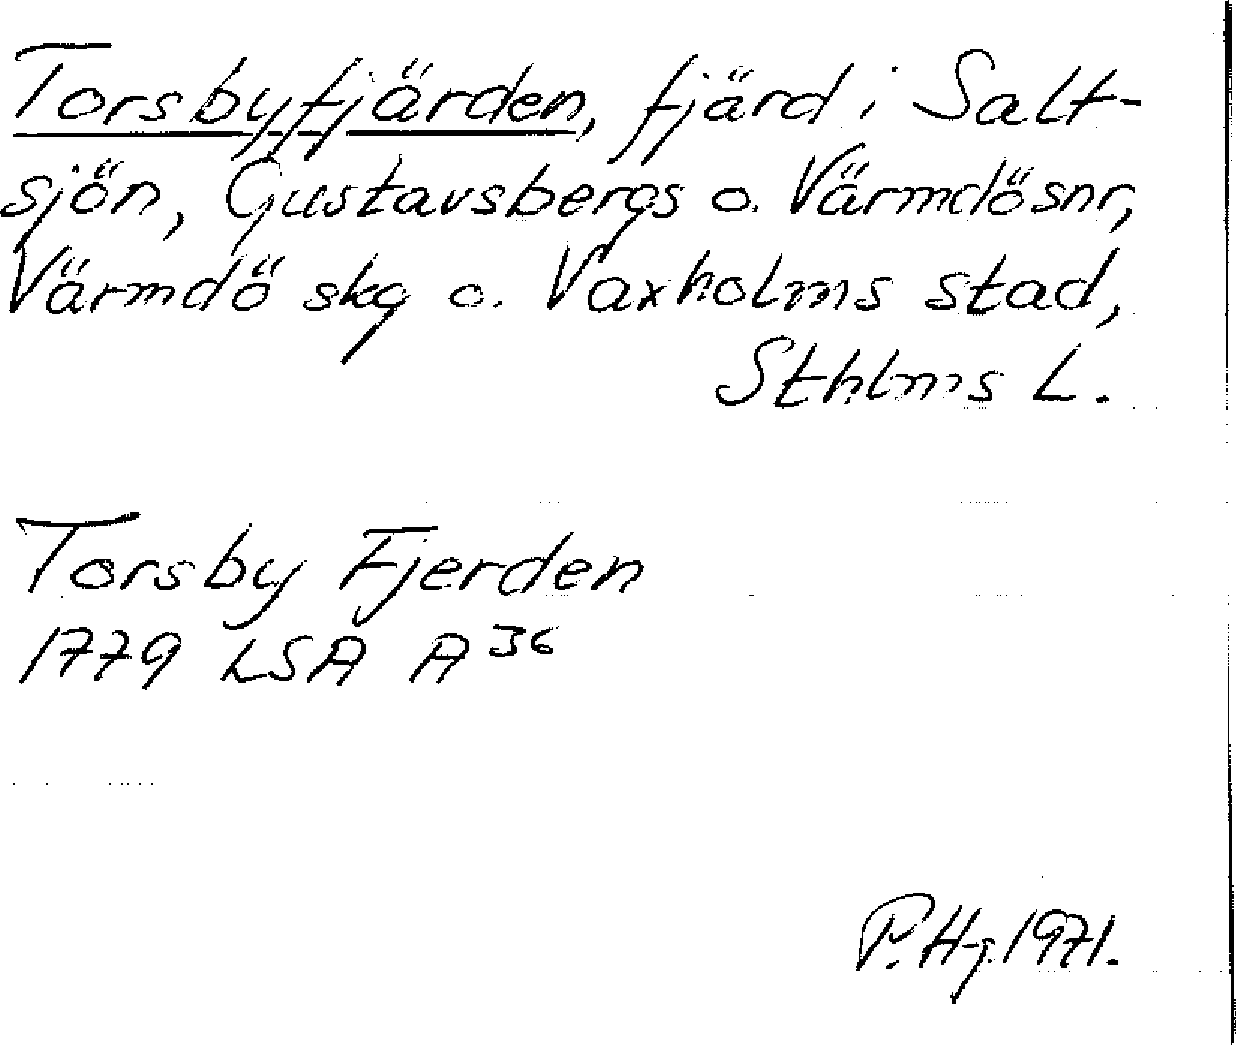 Torsbyfjärden, fjärd i Salt-
sjön, Gustavsbergs o. Värmdö snr,
Värmdö skg o. Vaxholms stad,
Sthlms L.
Torsby Fjerden
1779 LSA A 36
P. Hj. 1971.